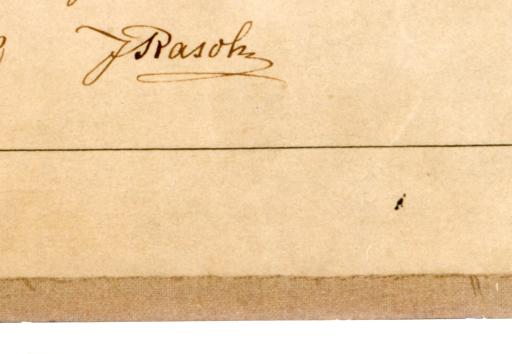 J Rasch